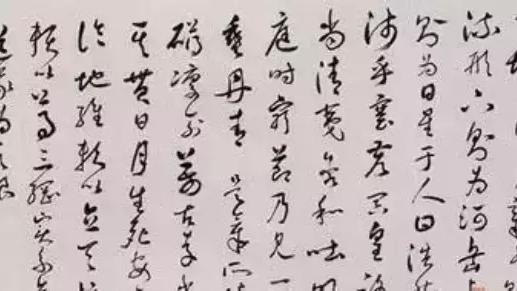 流形下則為河嶽上
則為日星于人曰浩然
沛乎塞蒼冥皇路
當清夷含和吐明
庭時窮節乃見一
垂丹青是氣所
礴凜冽萬古存當
其貫日月生死安
論地維賴以立天
賴以尊三綱實系
道義為之根